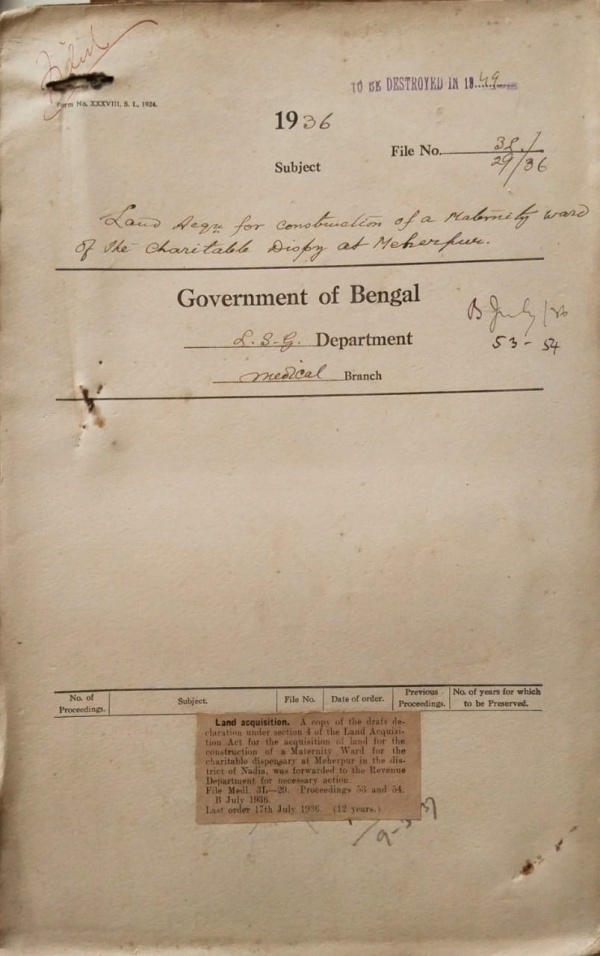 TO BE DESTROYED IN 1949
Form No. XXXVIII. S. L., 1924.
1936
File No. 3L/
29/36
Subject
Land Acqn for construction of a Maternity ward
of the Charitable Dispy at Meherpur.
Government of Bengal
B July/36
L. S. G. Department
53 - 54
medical Branch
No. of Proceedings.
Subject.
File No.
Date of order.
Previous Proceedings.
No. of years for which to be Preserved.
Land acquisition. A copy of the draft de-
claration under section 4 of the Land Acquisi-
tion Act for the acquisition of land for the
construction of a Maternity Ward for the
charitable dispensary at Meherpur in the dis-
trict of Nadia, was forwarded to the Revenue
Department for necessary action.
File Medl. 3L—29. Proceedings 53 and 54.
B July 1936.
Last order 17th July 1936. (12 years.)